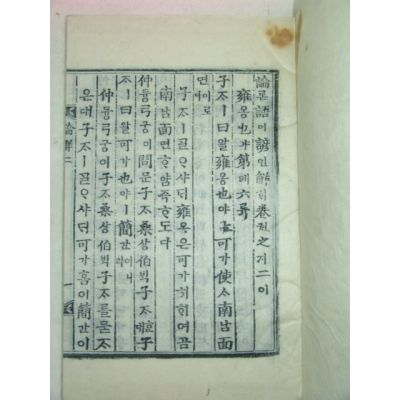 論론語어諺언解ᄒᆡ卷권之지二이
雍옹也야第뎨六륙
子ᄌᆞㅣ曰왈雍옹也야ᄂᆞᆫ可가使ᄉᆞ南남面
면이로다
子ᄌᆞㅣᄀᆞᆯᄋᆞ샤ᄃᆡ雍옹은可가히ᄒᆞ여곰
南남面면ᄒᆞ얌즉ᄒᆞ도다
仲듕弓궁이問문子ᄌᆞ桑상伯ᄇᆡᆨ子ᄌᆞᄒᆞᆫ대子
ᄌᆞㅣ曰왈可가也야ㅣ簡간이니라
仲듕弓궁이子ᄌᆞ桑상伯ᄇᆡᆨ子ᄌᆞ를묻ᄌᆞ
온대子ᄌᆞㅣᄀᆞᆯᄋᆞ샤ᄃᆡ可가흠이簡간이
論解二